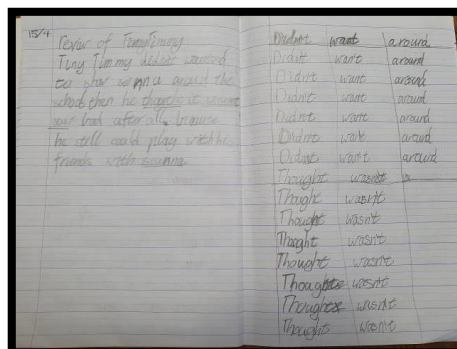 15/4
Review of TinyTimmy
Tiny Timmy didn't wanted
to show sienna around the
school then he thought it wasent
bad after all, because
he still could play with his
friends with sienna
Didn't want around
Didn't want around
Didn't want around
Didn't want around
Didn't want around
Didn't want around
Didn't want around
Thought wasn't a
Thought wasn't
Thought wasn't
Thought wasn't
Thought wasn't
Thought wasn't
Thought wasn't
Thought wasn't